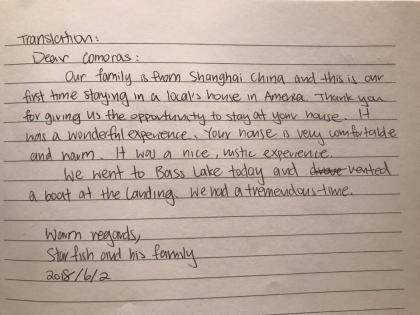 Translation:
Dear Comoras:
Our family is from Shanghai China and this is our
first time staying in a local's house in America. Thank you
for giving us the opportunity to stay at your house. It
was a wonderful experience. Your house is very comfortable
and warm. It was a nice, rustic experience.
We went to Bass Lake today and rented
a boat at the landing. We had a tremendous time.
Warm regards,
Starfish and his family
2018/6/2